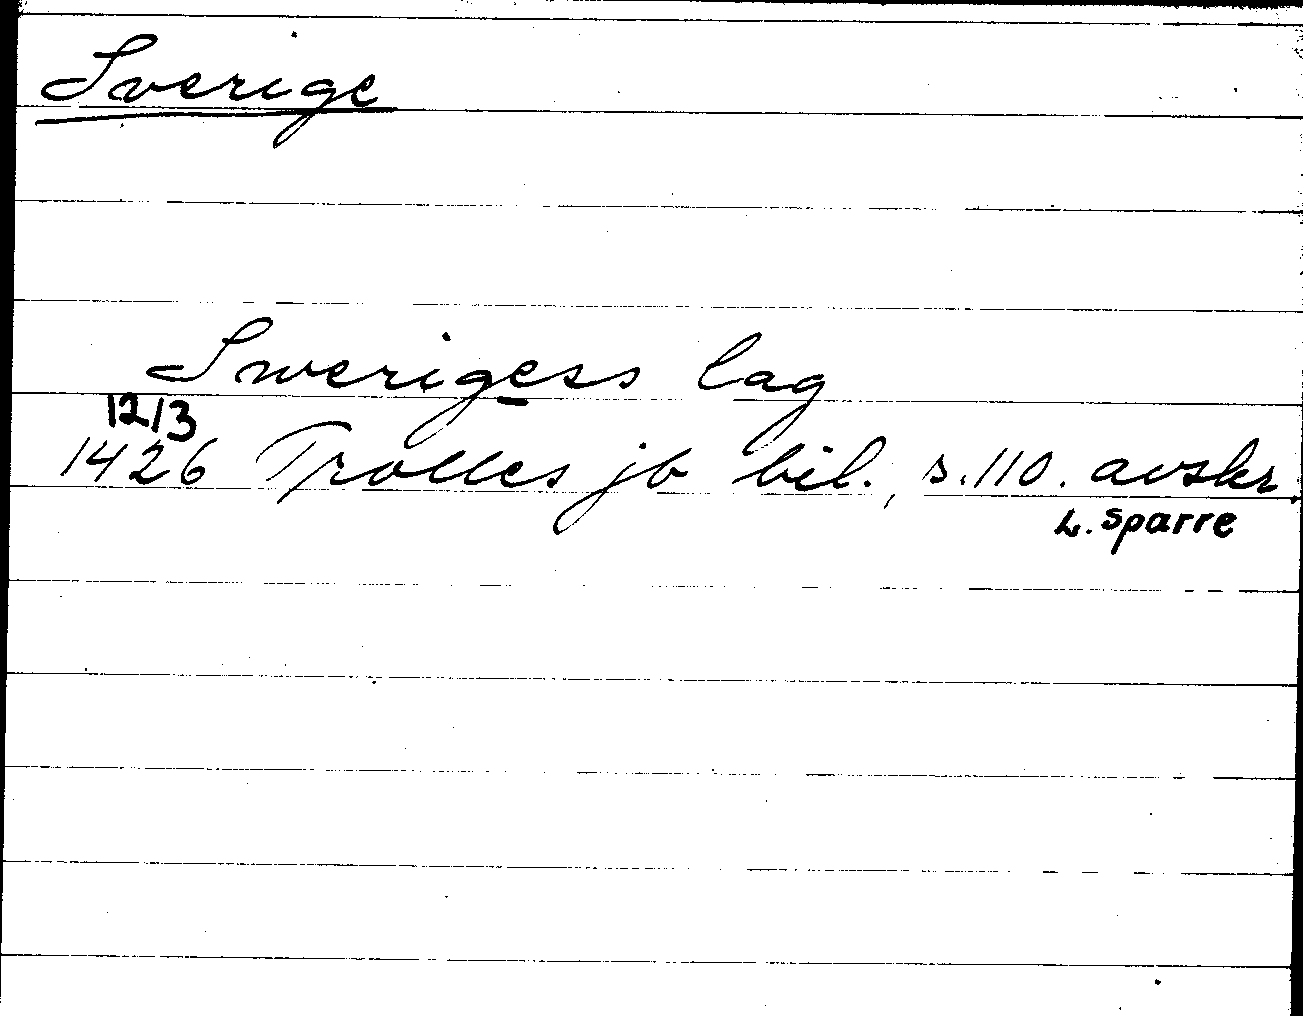 Sverige
Swerigess lag
12/3
1426 Trolles jb bil., s. 110. avskr.
L. Sparre